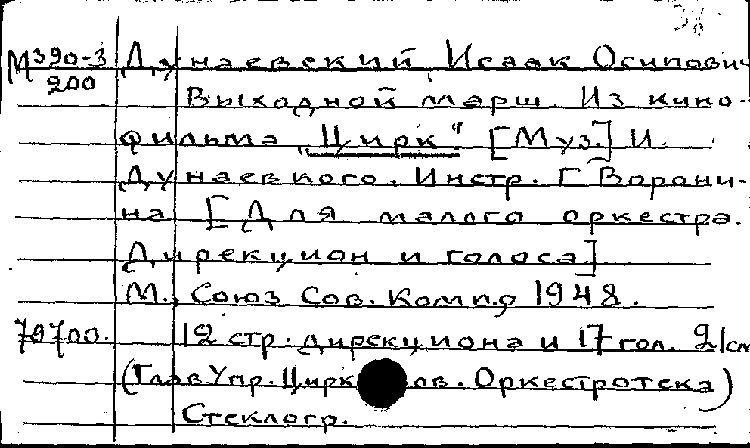 М390-3 Дунаевский, Исаак Осипович
200
Выходной марш. Из кино-
фильма "Цирк". [Муз.] И.
Дунаевкого. Инстр. Г Ворони-
на [Для малого оркестра.
Дирекцион и голоса]
М., Союз Сов. Комп., 1948.
79700. 12 стр. дирекциона и 17 гол. 21см
(Глав Упр. Цирк ов. Оркестротека)
Стеклогр.